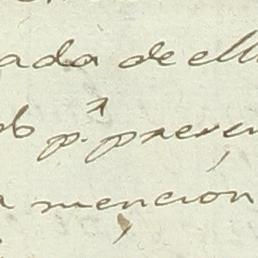 ada de ell
p.ª preven
mención